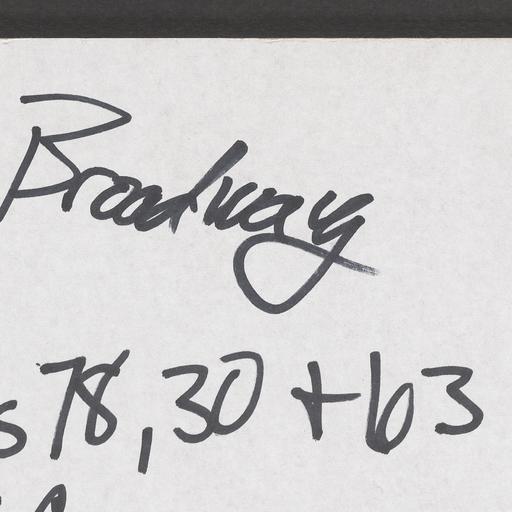 Broadway
s 78, 30 + 63